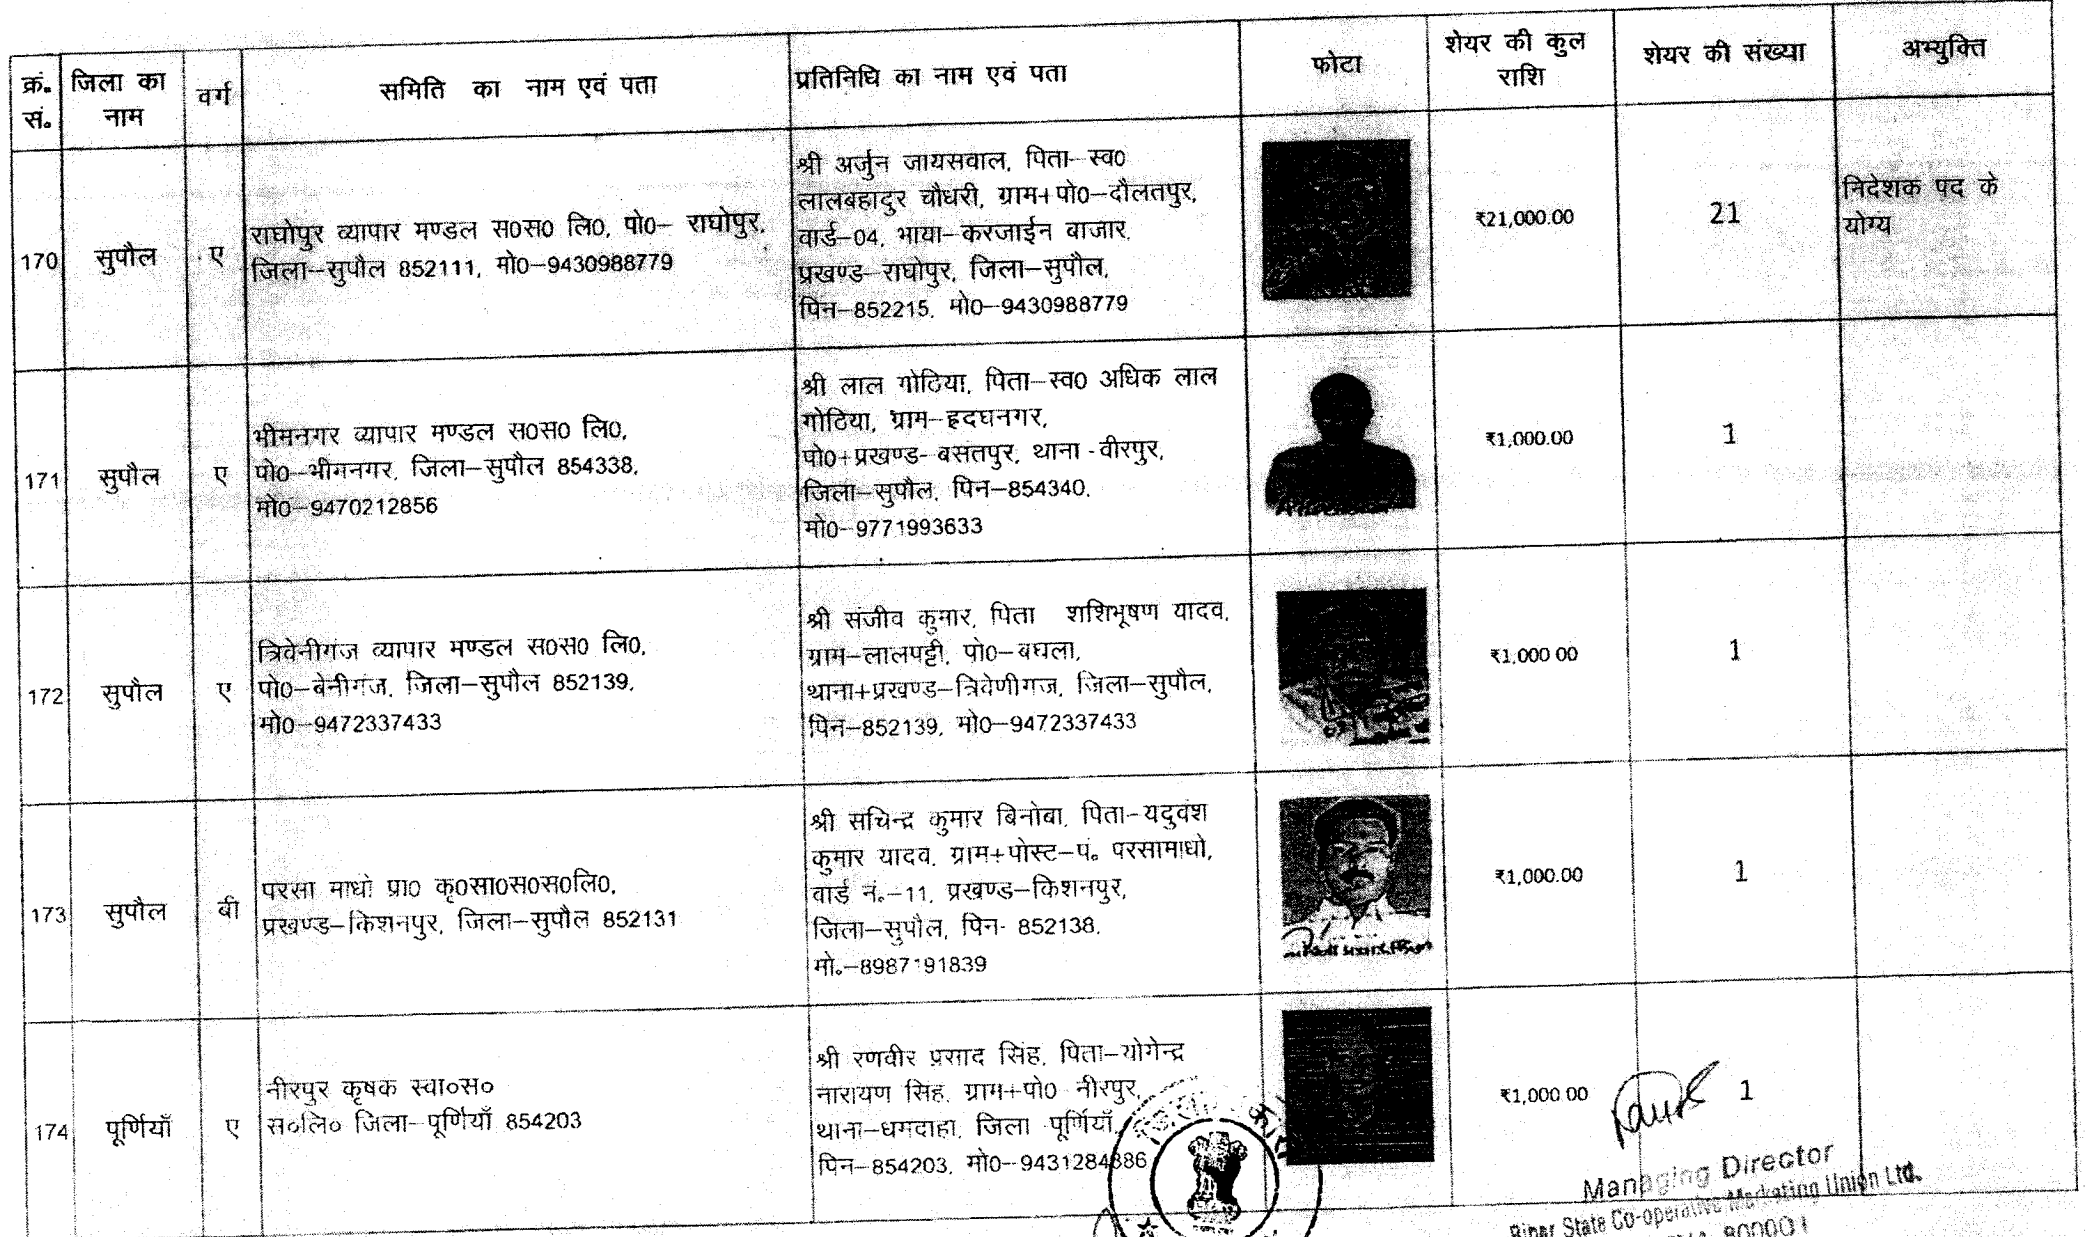 क्रं. सं.
जिला का नाम
वर्ग
समिति का नाम एवं पता
प्रतिनिधि का नाम एवं पता
फोटा
शेयर की कुल राशि
शेयर की संख्या
अभ्युक्ति
170
सुपौल
ए
राघोपुर व्यापार मण्डल स0स0 लि0, पो0– राघोपुर,
जिला–सुपौल 852111, मो0–9430988779
श्री अर्जुन जायसवाल, पिता–स्व0
लालबहादुर चौधरी, ग्राम+पो0–दौलतपुर,
वार्ड–04, भाया–करजाईन बाजार,
प्रखण्ड–राघोपुर, जिला–सुपौल,
पिन–852215, मो0–9430988779
₹21,000.00
21
निदेशक पद के
योग्य
171
सुपौल
ए
भीमनगर व्यापार मण्डल स0स0 लि0,
पो0–भीमनगर, जिला–सुपौल 854338,
मो0–9470212856
श्री लाल गोठिया, पिता–स्व0 अधिक लाल
गोठिया, ग्राम–ह्रदघनगर,
पो0+प्रखण्ड-बसंतपुर, थाना -वीरपुर,
जिला–सुपौल, पिन–854340,
मो0–9771993633
₹1,000.00
1
172
सुपौल
ए
त्रिवेनीगंज व्यापार मण्डल स0स0 लि0,
पो0–बेनीगंज, जिला–सुपौल 852139,
मो0–9472337433
श्री संजीव कुमार, पिता शशिभूषण यादव,
ग्राम–लालपट्टी, पो0–बघला,
थाना+प्रखण्ड–त्रिवेणीगंज, जिला–सुपौल,
पिन–852139, मो0–9472337433
₹1,000 00
1
173
सुपौल
बी
परसा माधो प्रा0 कृ0सा0स0स0लि0,
प्रखण्ड–किशनपुर, जिला–सुपौल 852131
श्री सचिन्द्र कुमार बिनोबा, पिता–यदुवंश
कुमार यादव, ग्राम+पोस्ट–पं. परसामाधो,
वार्ड नं.–11, प्रखण्ड–किशनपुर,
जिला–सुपौल, पिन- 852138,
मो.–8987191839
₹1,000.00
1
174
पूर्णियाँ
ए
नीरपुर कृषक स्वा०स०
स०लि० जिला–पूर्णियाँ 854203
श्री रणवीर प्रसाद सिंह, पिता–योगेन्द्र
नारायण सिंह, ग्राम+पो0 नीरपुर,
थाना–धमदाहा, जिला पूर्णियाँ,
पिन–854203, मो0–9431284886
₹1,000.00
1
Managing Director
Bihar State Co-operative Marketing Union Ltd.
800001